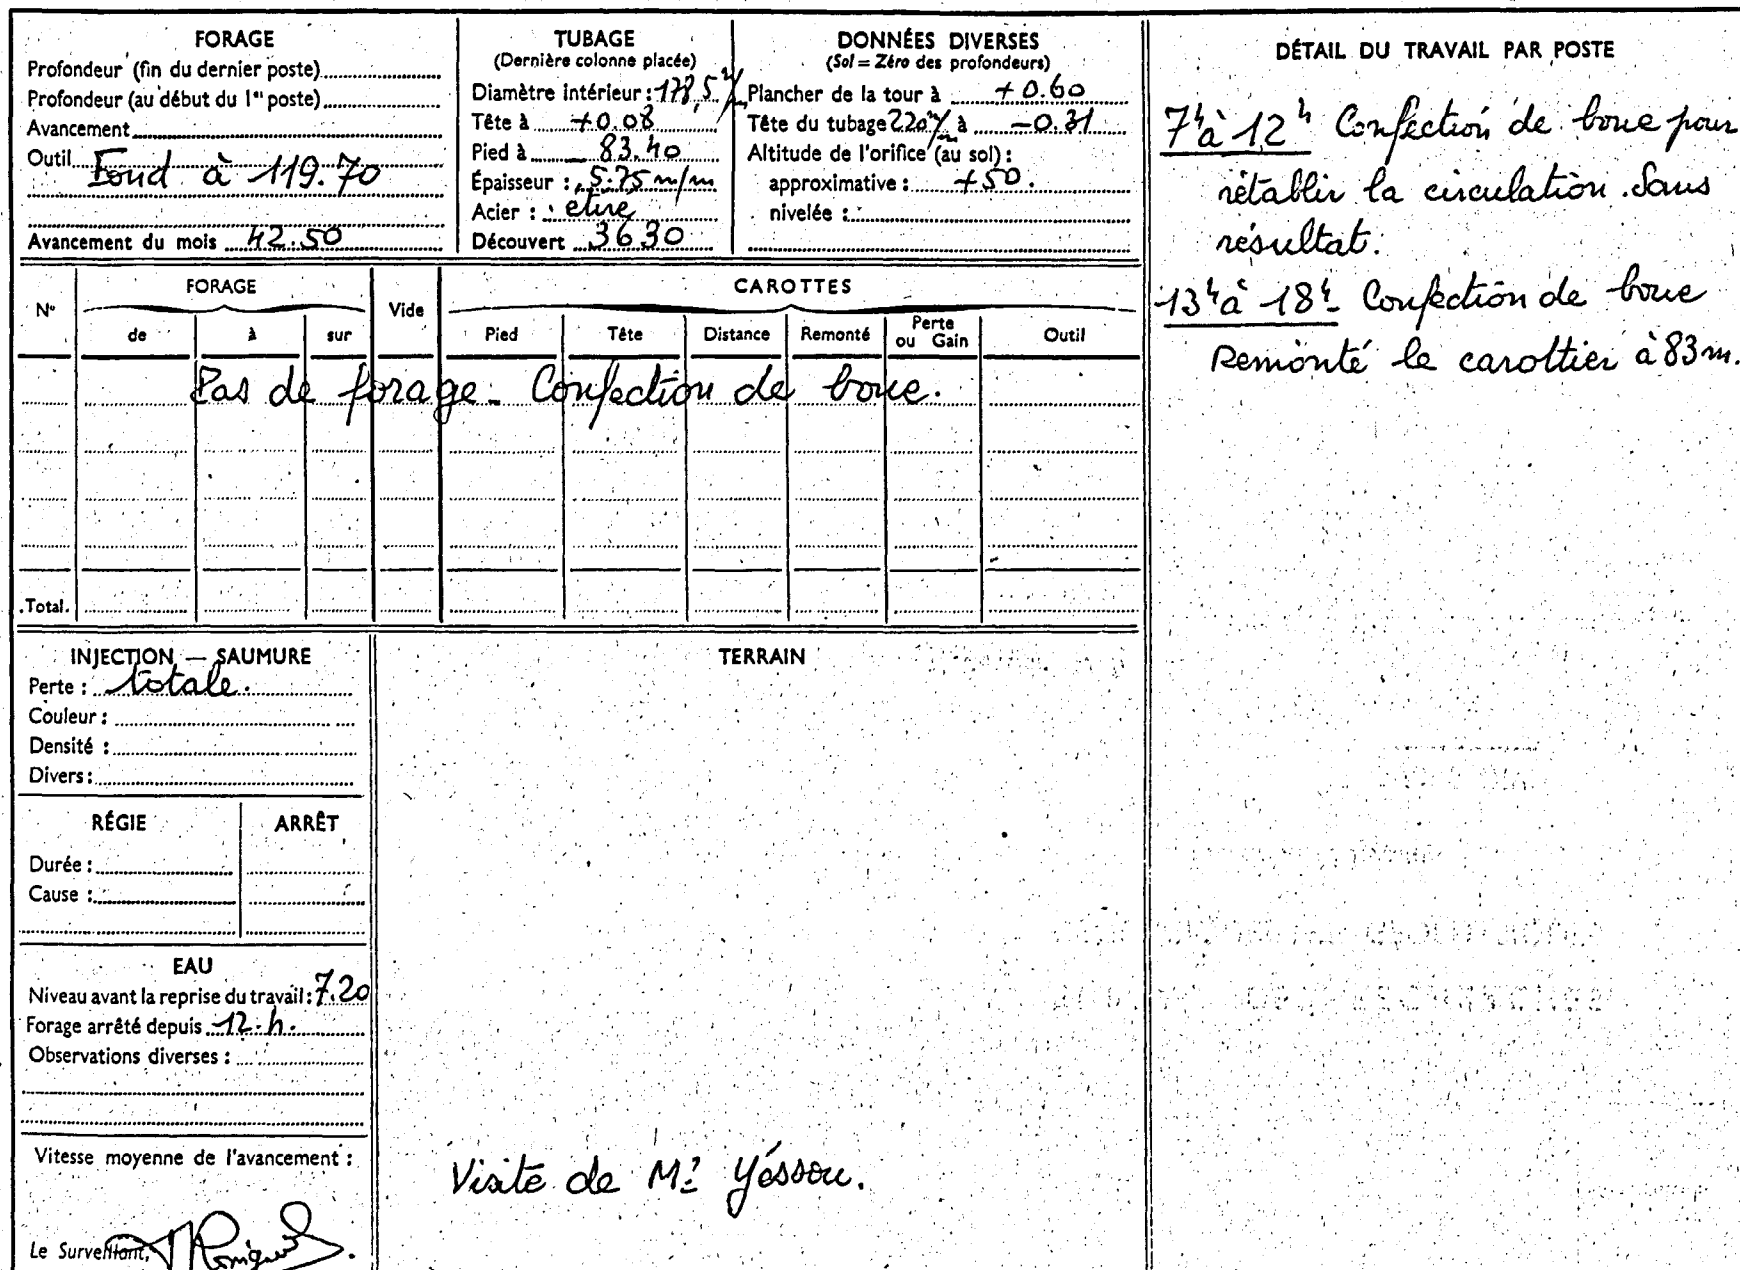 FORAGE
Profondeur (fin du dernier poste)
Profondeur (au début du 1er poste)
Avancement
Outil
Fond à 119.70
Avancement du mois 42.50
TUBAGE
(Dernière colonne placée)
Diamètre intérieur : 178,5 m/m
Tête à +0.08
Pied à 83.40
Épaisseur : 5.75 m/m
Acier : étiré
Découvert 36.30
DONNÉES DIVERSES
(Sol = Zéro des profondeurs)
Plancher de la tour à +0.60
Tête du tubage 220 m/m à -0.31
Altitude de l'orifice (au sol) :
approximative : +50.
nivelée :
N° FORAGE Vide CAROTTES
de à sur Pied Tête Distance Remonté Perte ou Gain Outil
Pas de forage - Confection de boue.
Total.
INJECTION — SAUMURE
Perte : totale.
Couleur :
Densité :
Divers :
RÉGIE ARRÊT
Durée :
Cause :
EAU
Niveau avant la reprise du travail : 7.20
Forage arrêté depuis 12.h.
Observations diverses :
Vitesse moyenne de l'avancement :
Le Surveillant,
TERRAIN
Visite de Mr Yéssou.
DÉTAIL DU TRAVAIL PAR POSTE
7h à 12h Confection de boue pour
rétablir la circulation. Sans
résultat.
13h à 18h - Confection de boue
Remonté le carottier à 83 m.